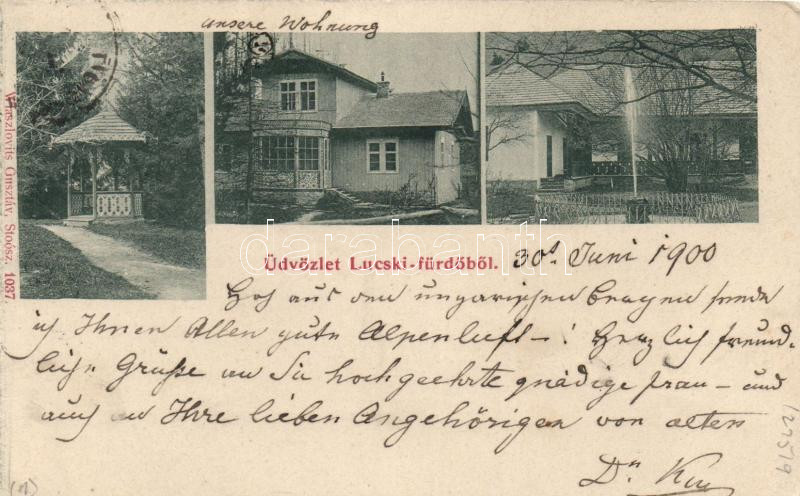 unsere Wohnung
Wlaszlovits Gusztáv, Stoósz. 1037.
darabanth
Üdvözlet Lucski-fürdőből.
30t. Juni 1900
Hoch aus den ungarischen Bergen sende
ich Ihnen Allen gute Alpenluft – ! Herzlich freund-
liche Grüße an Sie hochgeehrte gnädige Frau – und
auch an Ihre lieben Angehörigen von alten
Dr
127519